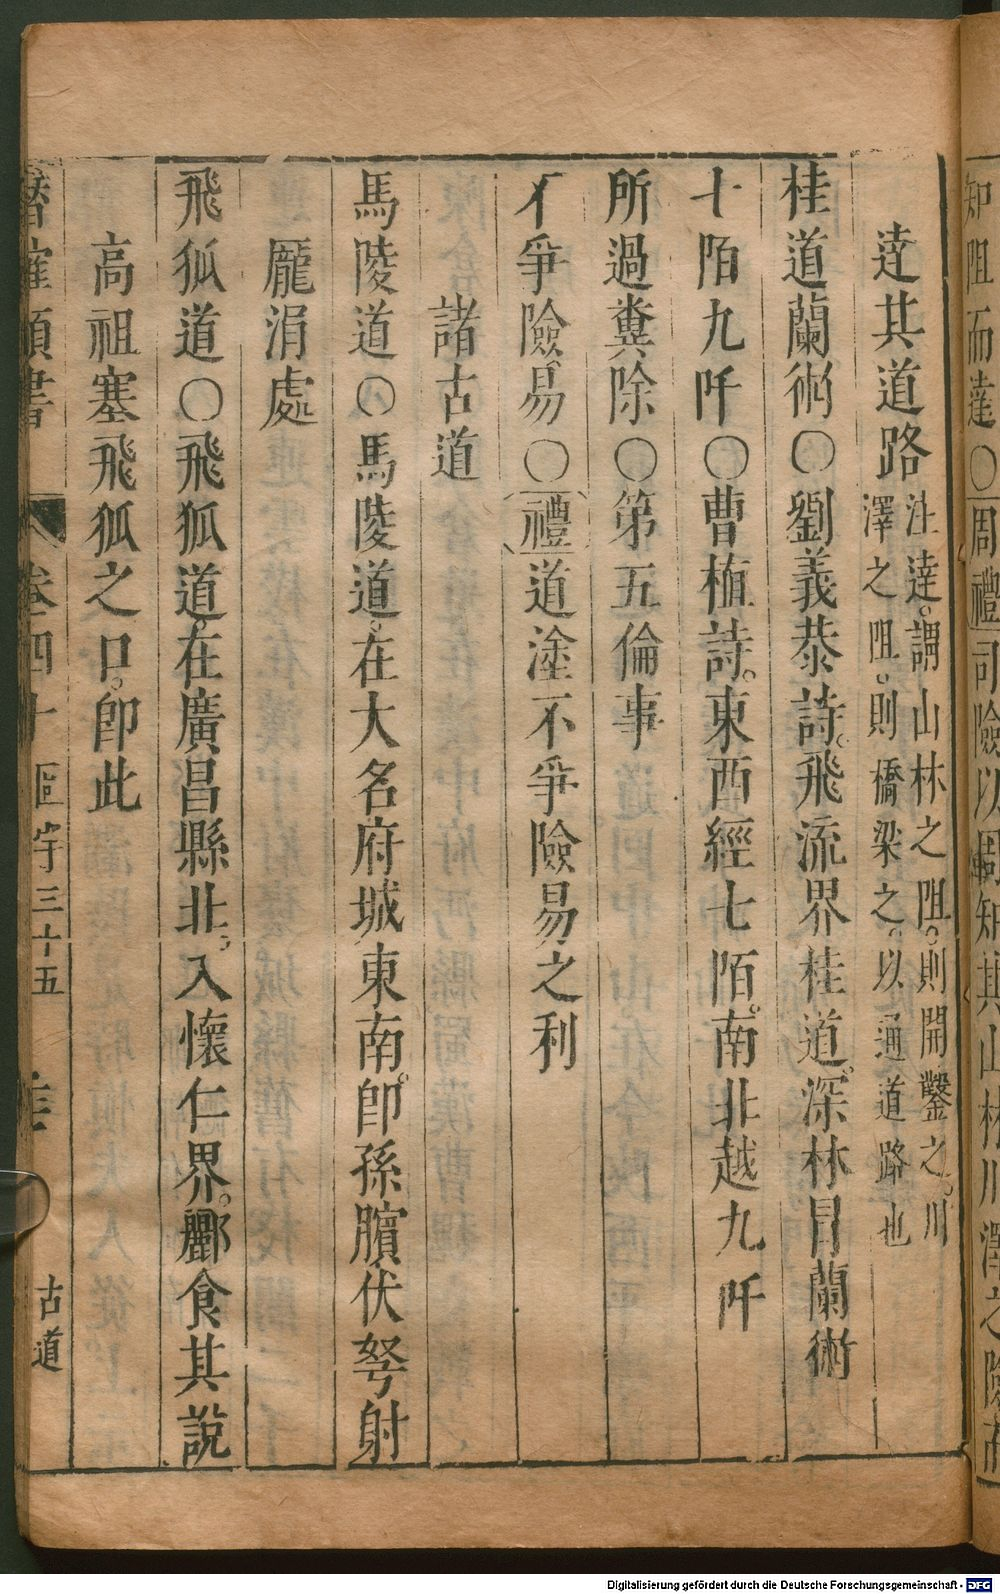 知阻而達○周禮司險以周知其山林川澤之險而
達其道路
注達。謂山林之阻。則開鑿之。川
澤之阻。則橋梁之。以通道路也
桂道蘭術○劉義恭詩。飛流界桂道。深林冐蘭術
十陌九阡○曹植詩。東西經七陌。南北越九阡
所過糞除○第五倫事
不爭險易○禮道塗不爭險易之利
諸古道
馬陵道○馬陵道。在大名府城東南。即孫臏伏弩射
龐涓處
飛狐道○飛狐道。在廣昌縣北。入懷仁界。酈食其說
高祖塞飛狐之口。即此
潛確類書 卷四十 區宇三十五 古道
Digitalisierung gefördert durch die Deutsche Forschungsgemeinschaft - DFG